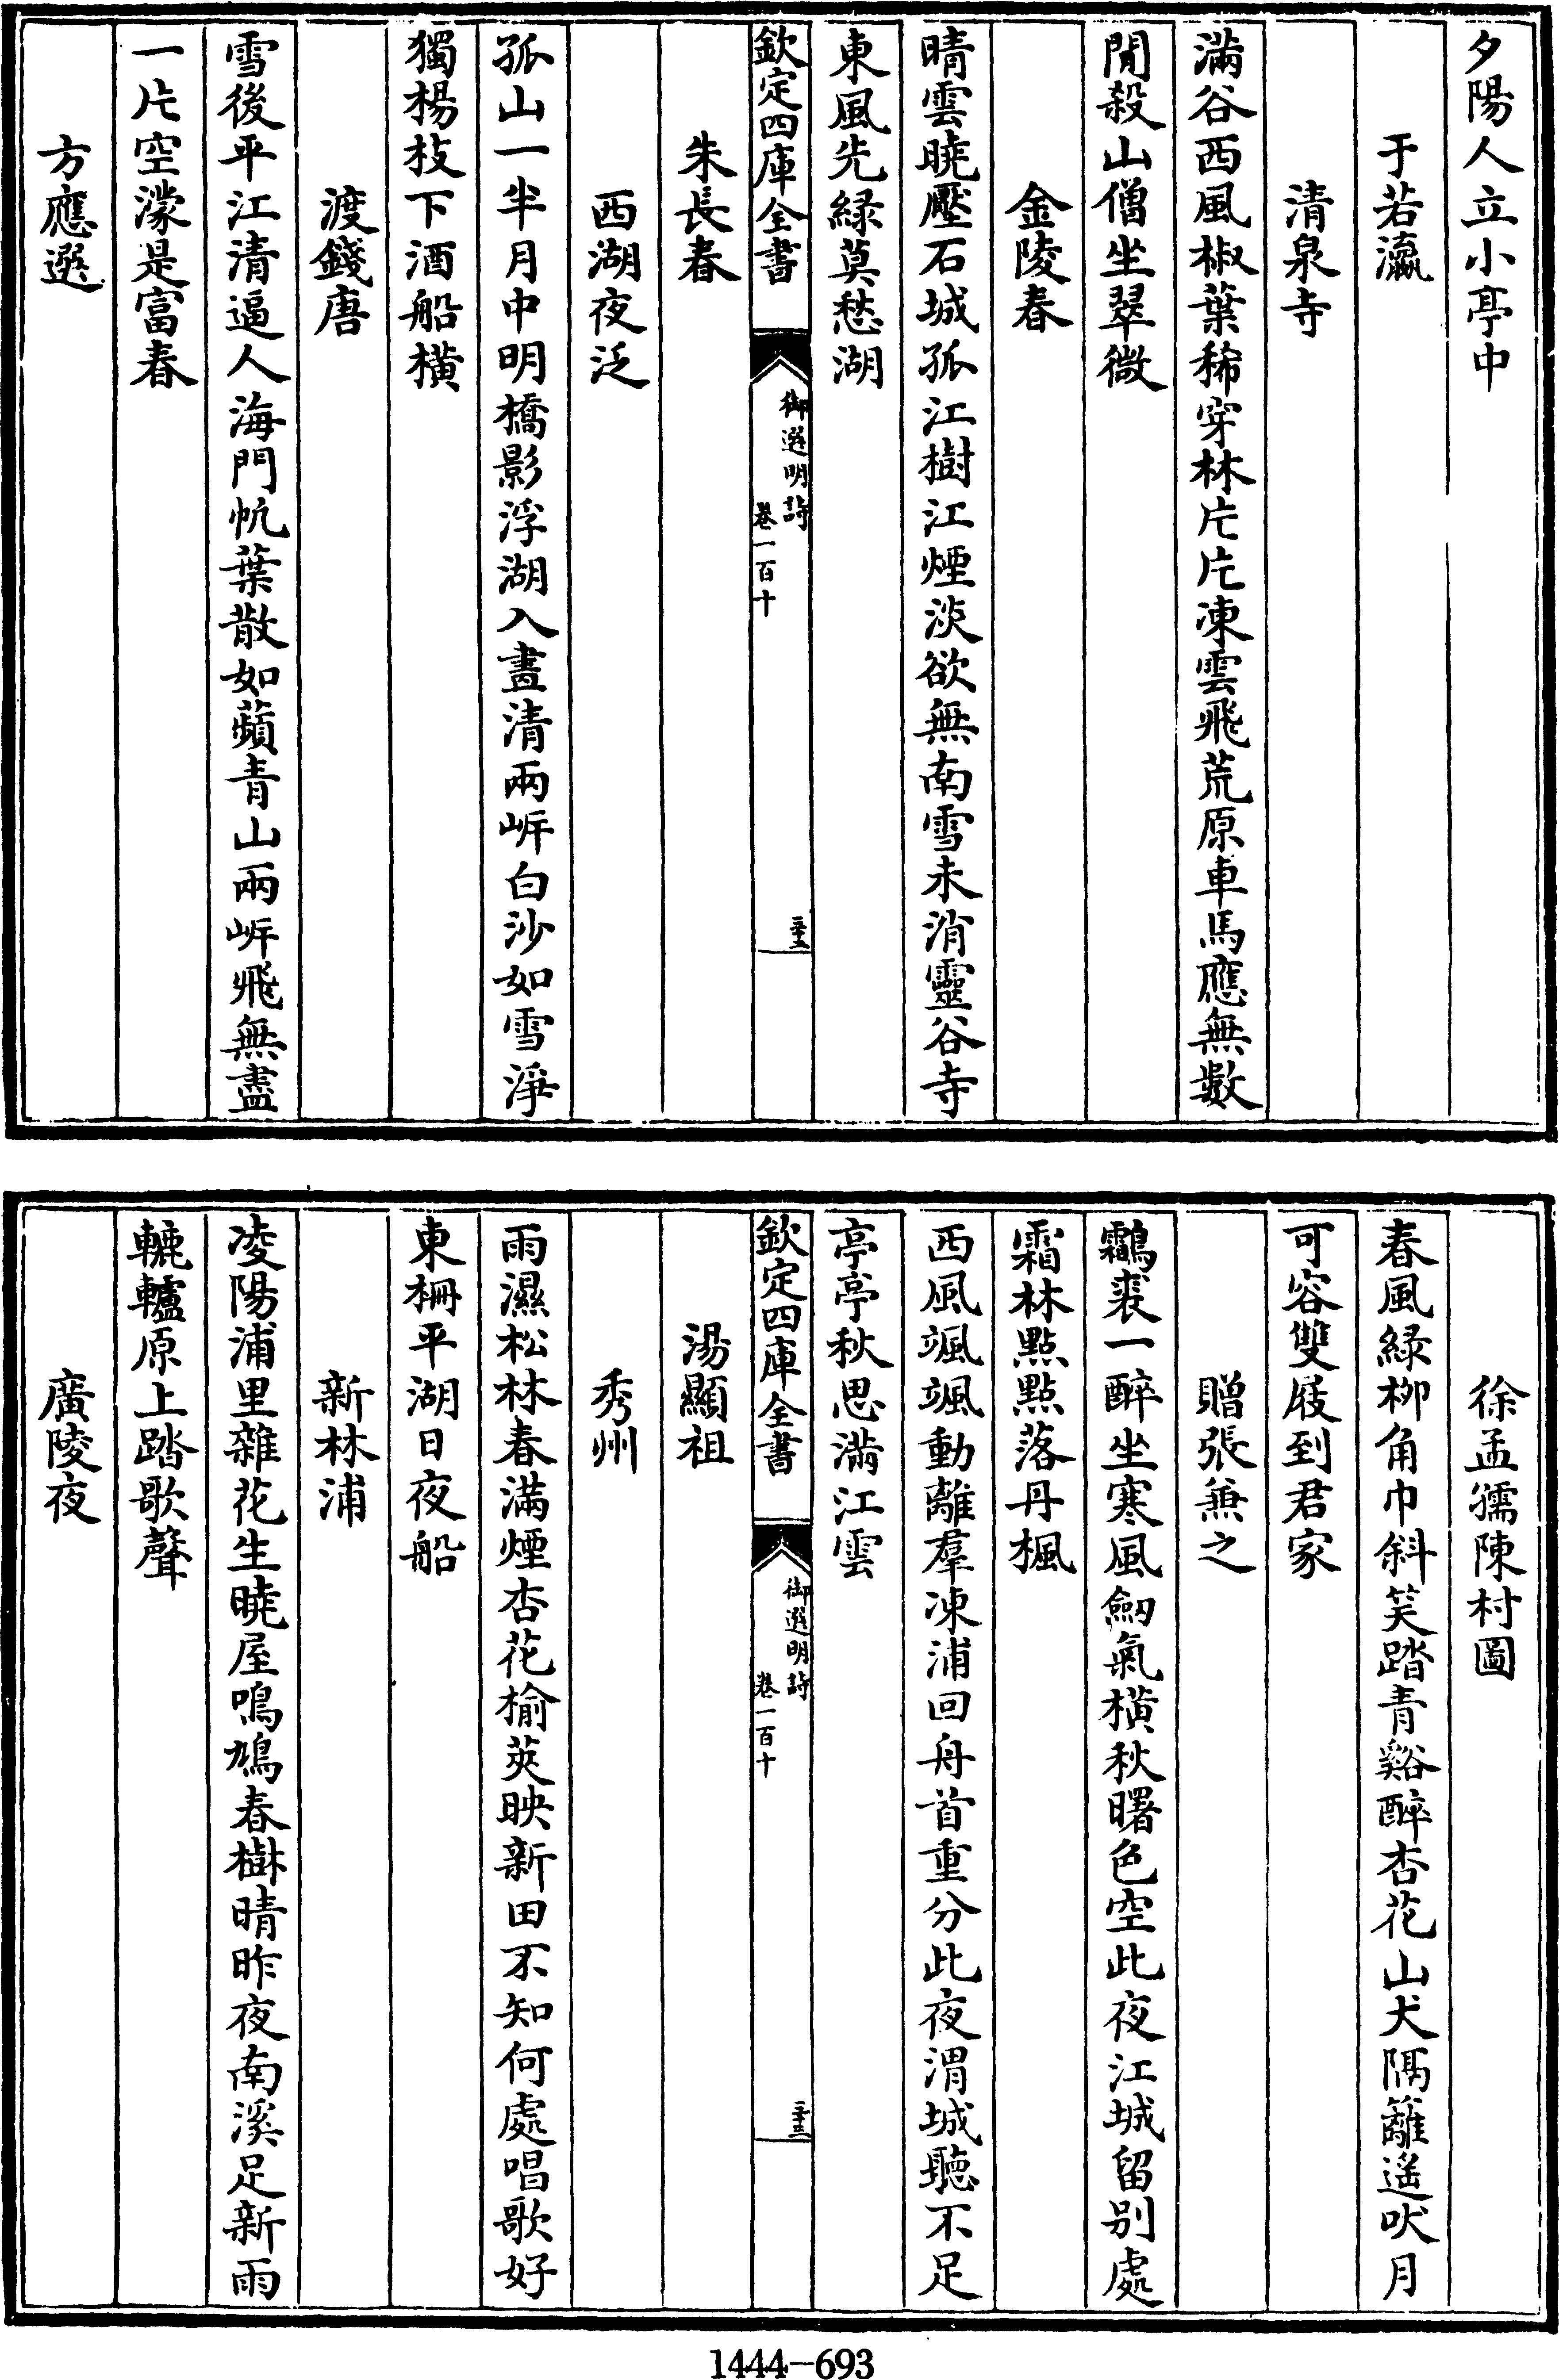 夕陽人立小亭中
于若瀛
清泉寺
滿谷西風椒葉稀穿林片片凍雲飛荒原車馬應無數
閒殺山僧坐翠微
金陵春
晴雲曉壓石城孤江樹江煙淡欲無南雪未消靈谷寺
東風先緑莫愁湖
欽定四庫全書
御選明詩
卷一百十
三十五
朱長春
西湖夜泛
孤山一半月中明橋影浮湖入畫清兩岍白沙如雪淨
獨楊枝下酒船橫
渡錢唐
雪後平江清逼人海門帆葉散如蘋青山兩岍飛無盡
一片空濛是富春
方應選
徐孟孺陳村圖
春風緑柳角巾斜笑踏青谿醉杏花山犬隔籬遙吠月
可容雙屐到君家
贈張兼之
鸘裘一醉坐寒風劒氣橫秋曙色空此夜江城留别處
霜林點點落丹楓
西風颯颯動離羣凍浦回舟首重分此夜渭城聽不足
亭亭秋思滿江雲
欽定四庫全書
御選明詩
卷一百十
湯顯祖
秀州
雨濕松林春滿煙杏花榆莢映新田不知何處唱歌好
東柵平湖日夜船
新林浦
凌陽浦里雜花生曉屋鳴鳩春樹晴昨夜南溪足新雨
轆轤原上踏歌聲
廣陵夜
1444-693